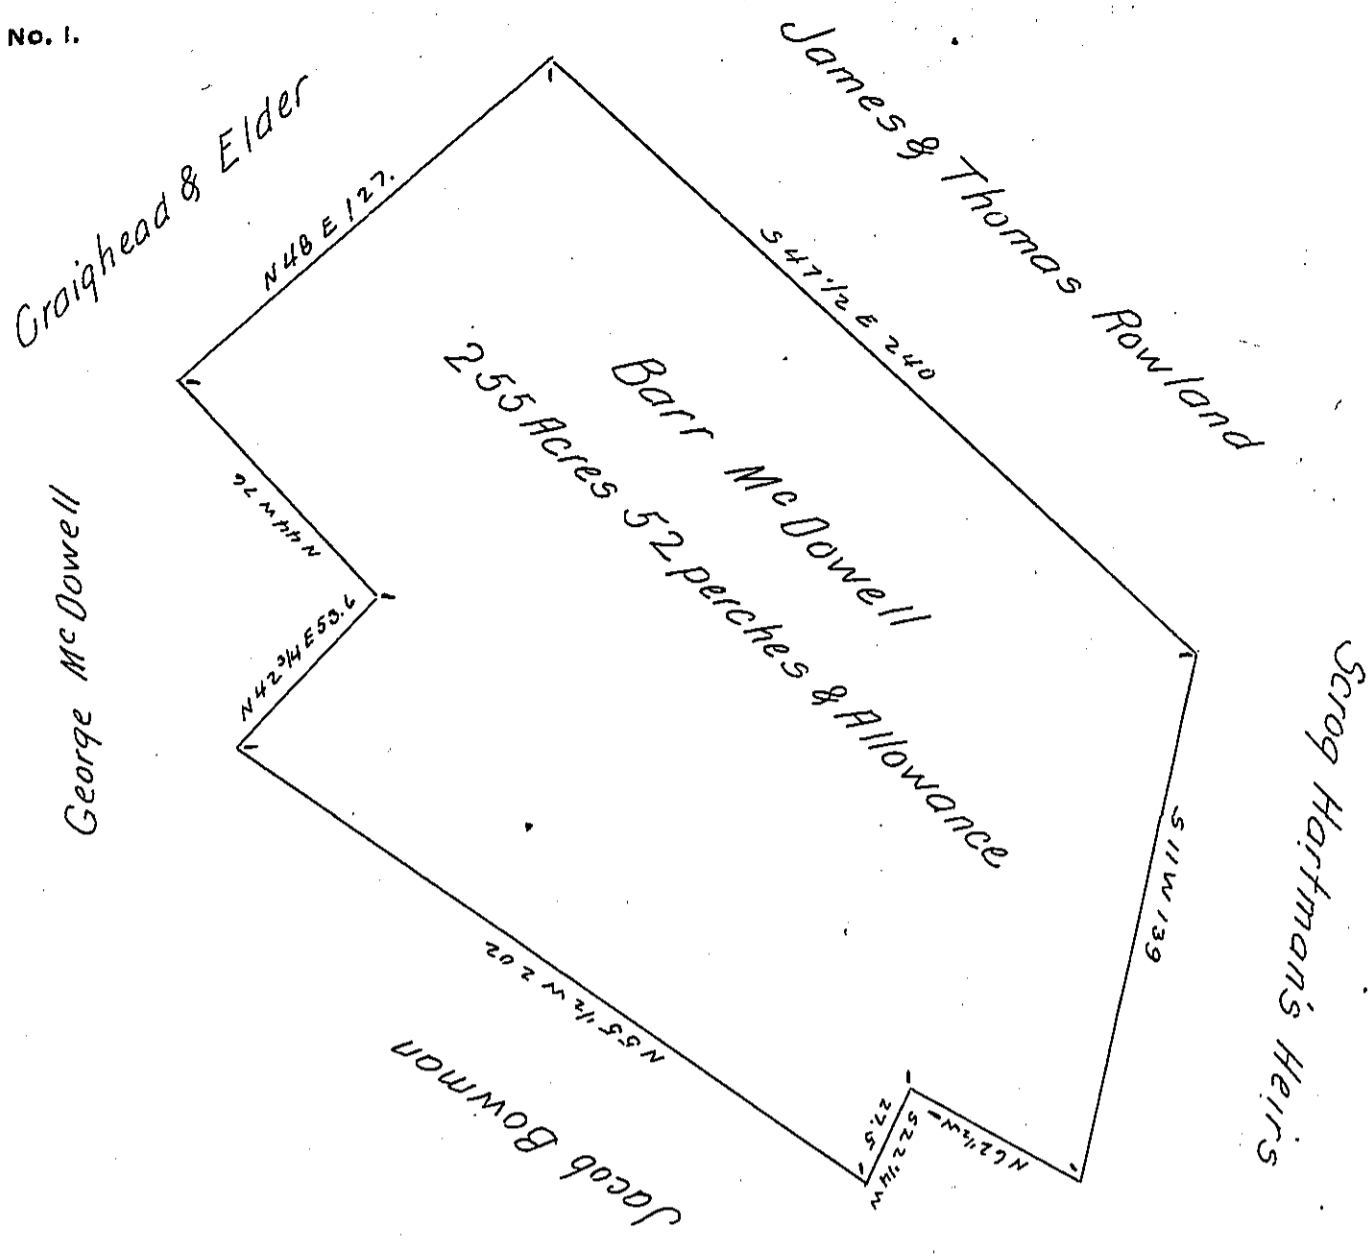 No. 1.
Craighead & Elder
James & Thomas Rowland
N 48 E 127.
S 47 1/2 E 240
Barr McDowell
255 Acres 52 perches & Allowance
N 44 W 76
George McDowell
N 42 3/4 E 53.6
Scrog Hartman's Heirs
S 11 W 139
N 55 1/2 W 202
Jacob Bowman
N 62 1/2 W
S 22 1/4 W
27.5